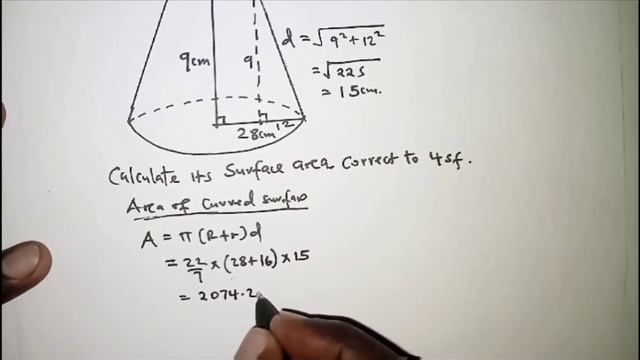 9cm
9
28cm
12
d = √9²+12²
= √225
= 15cm.
Calculate its Surface area Correct to 4sf.
Area of Curved surface
A = π(R+r)d
= 22/7 × (28+16) × 15
= 2074.2